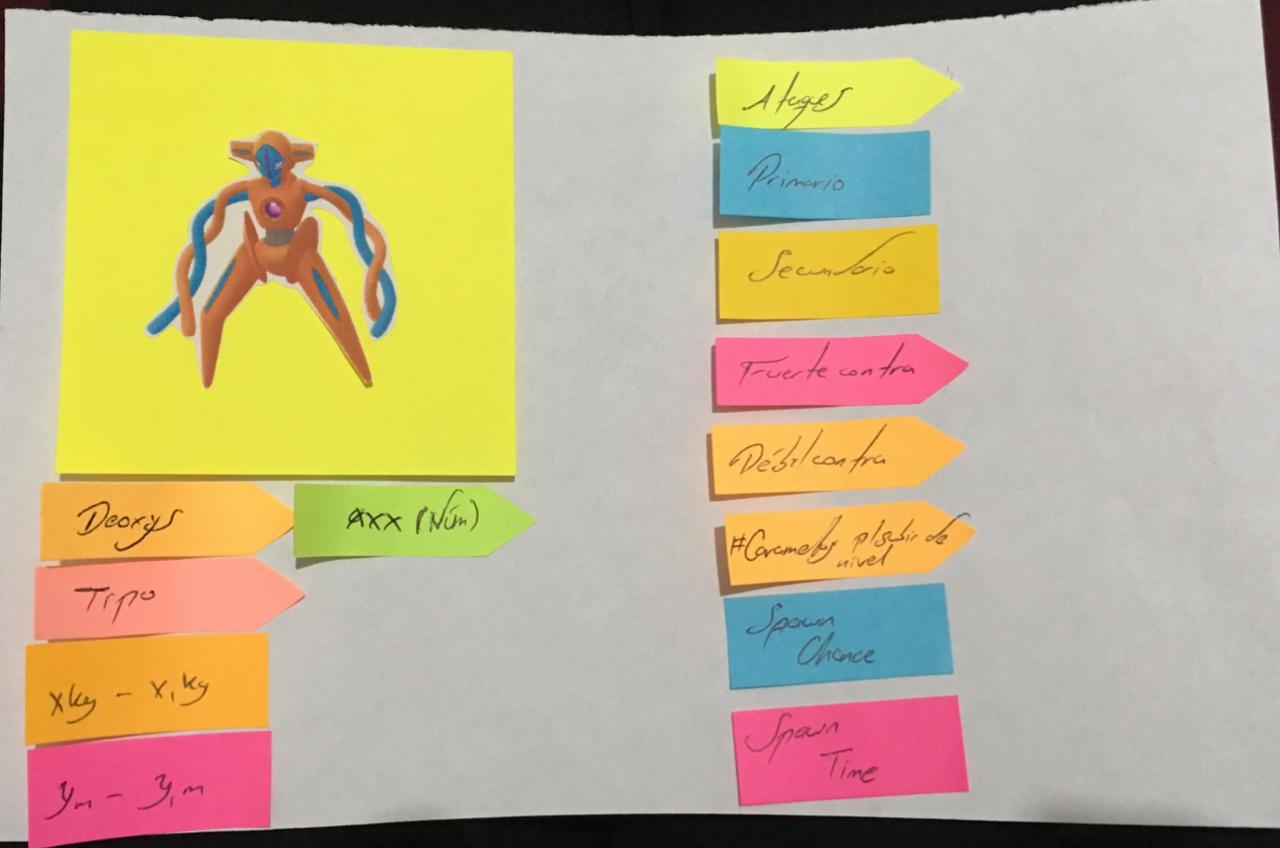 Deoxys
#xx (Núm)
Tipo
xkg - x,kg
ym - y,m
Ataques
Primario
Secundario
Fuerte contra
Débil contra
#Caramelos p/subir de
nivel
Spawn
Chance
Spawn
Time